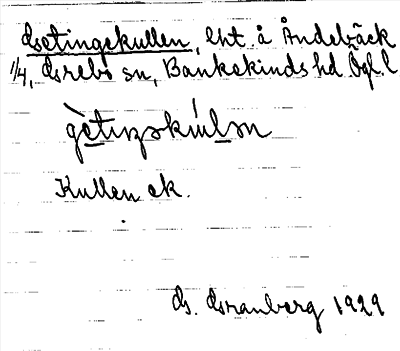 Getingekullen, lht. å Åndebäck
1/4, Grebo sn, Bankekinds hd. Ögl. l
Kullen ek.
G. Granberg 1929